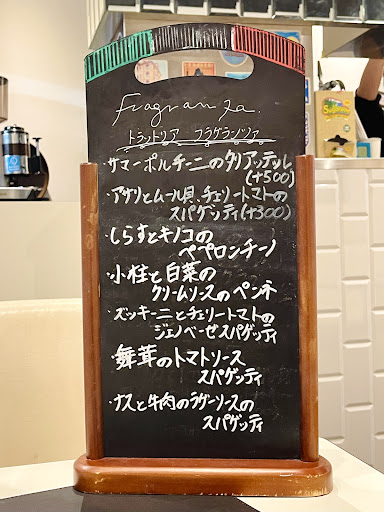 Fragranza.
トラットリア フラグランツァ
・サマーポルチーニのタリアッテレ
(+500)
・アサリとムール貝、チェリートマトの
スパゲッティ(+300)
・しらすとキノコの
ペペロンチーノ
・小柱と白菜の
クリームソースのペンネ
・ズッキーニとチェリートマトの
ジェノベーゼスパゲッティ
・舞茸のトマトソース
スパゲッティ
・ナスと牛肉のラグーソースの
スパゲッティ